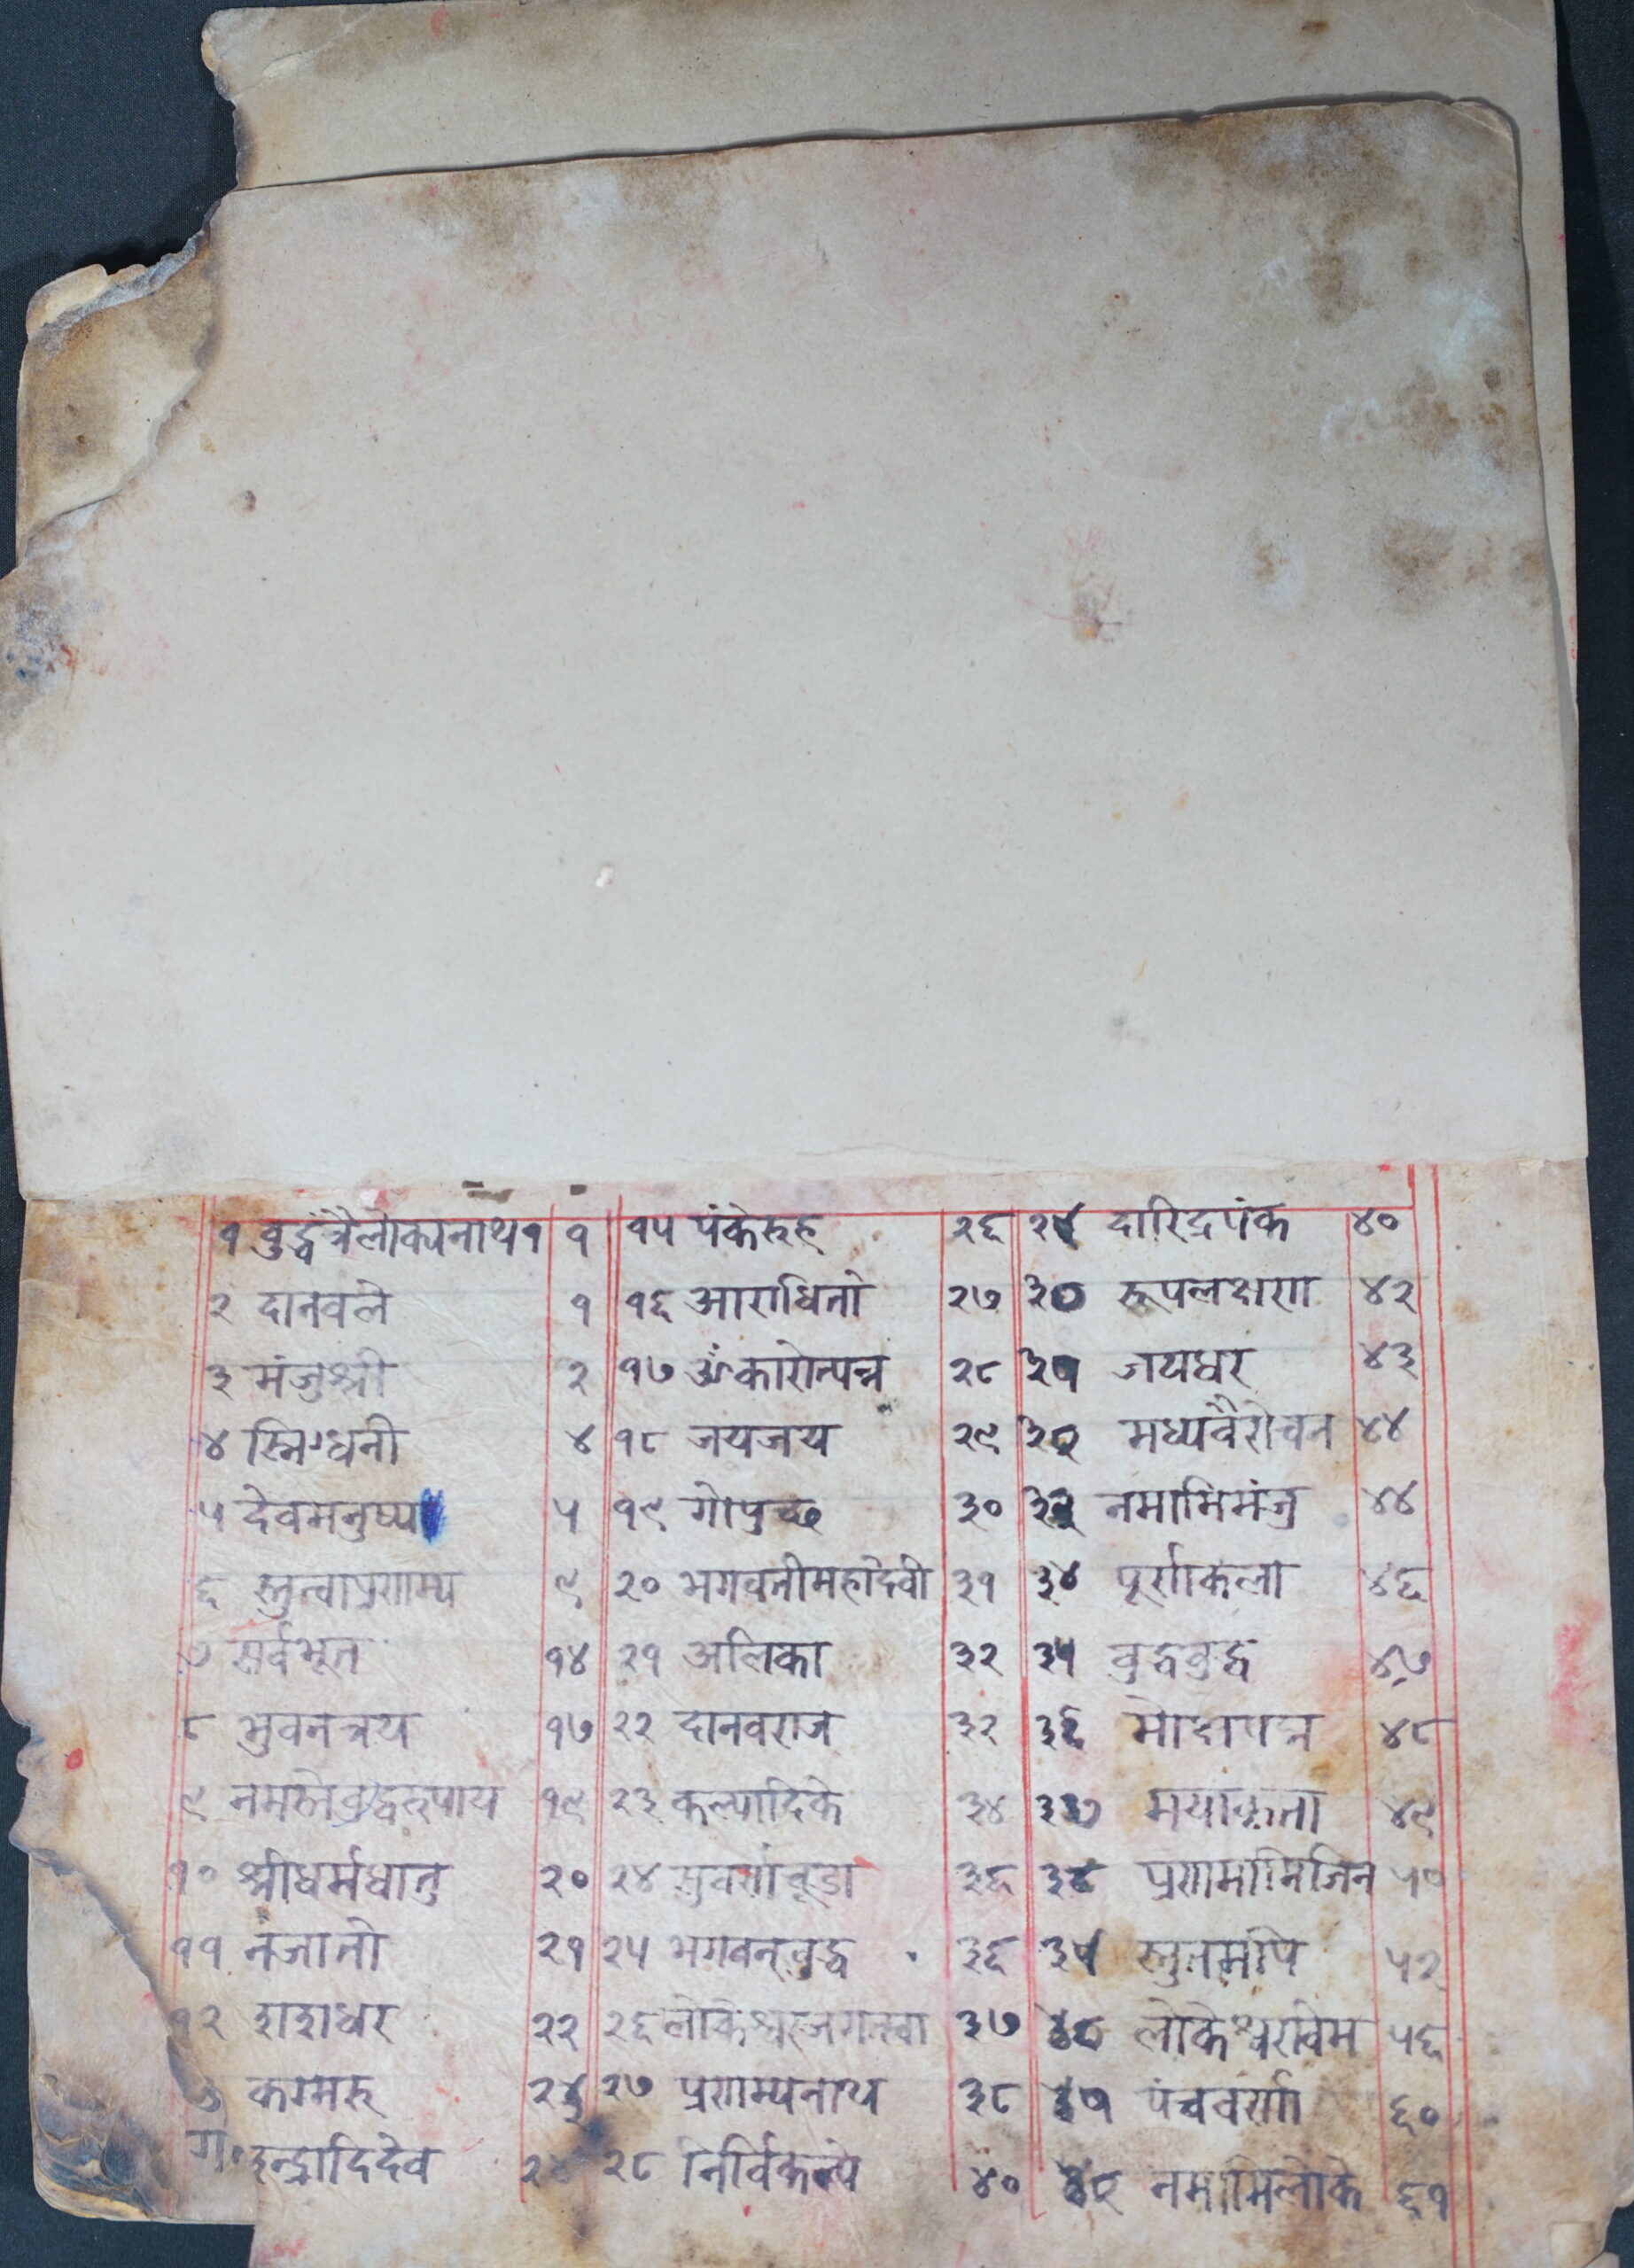 १ वुद्धंत्रैलोक्यनाथ१ १ १५ पंकेरुह २६ २९ दारिद्रपंक ४०
२ दानवले १ १६ आराधितो २७ ३० रूपलक्षरा ४२
३ मंजुश्री २ १७ ॐकारोत्पन्न २८ ३१ जयधर ४३
४ स्निग्धनी ४ १८ जयजय २९ ३२ मध्यवैरोचन ४४
५ देवमनुष्य ५ १९ गोपुच्छ ३० ३३ नमामिमंजु ४४
६ स्तुत्वाप्रणम्य ९ २० भगवतीमहादेवी ३१ ३४ पूर्णाकला ४६
७ सर्वभूत १४ २१ अलिका ३२ ३५ वुद्धवुद्ध ४७
८ भुवनत्रय १७ २२ दानवराज ३२ ३६ ४८
९ नमस्तेवुद्धरुपाय १९ २३ कल्पादिके ३४ ३७ मयाकृता ४९
१० श्रीधर्मधातु २० २४ सुवर्णाचूडा ३६ ३८ प्रणमामिजिन ५०
११ नजातो २१ २५ भगवन्वुद्ध ३६ ३९ स्तुतमपि ५२
१२ शशधर २२ २६ लोकेश्वरजगत्त्वा ३७ ४० लोकेश्वरविम ५६
कग्मरु २३ २७ प्रणम्यनाथ ३८ ४१ पंचवर्णा ६०
इन्द्रादिदेव २४ २८ निर्विकल्पे ४० ४२ नमामिलोके ६१